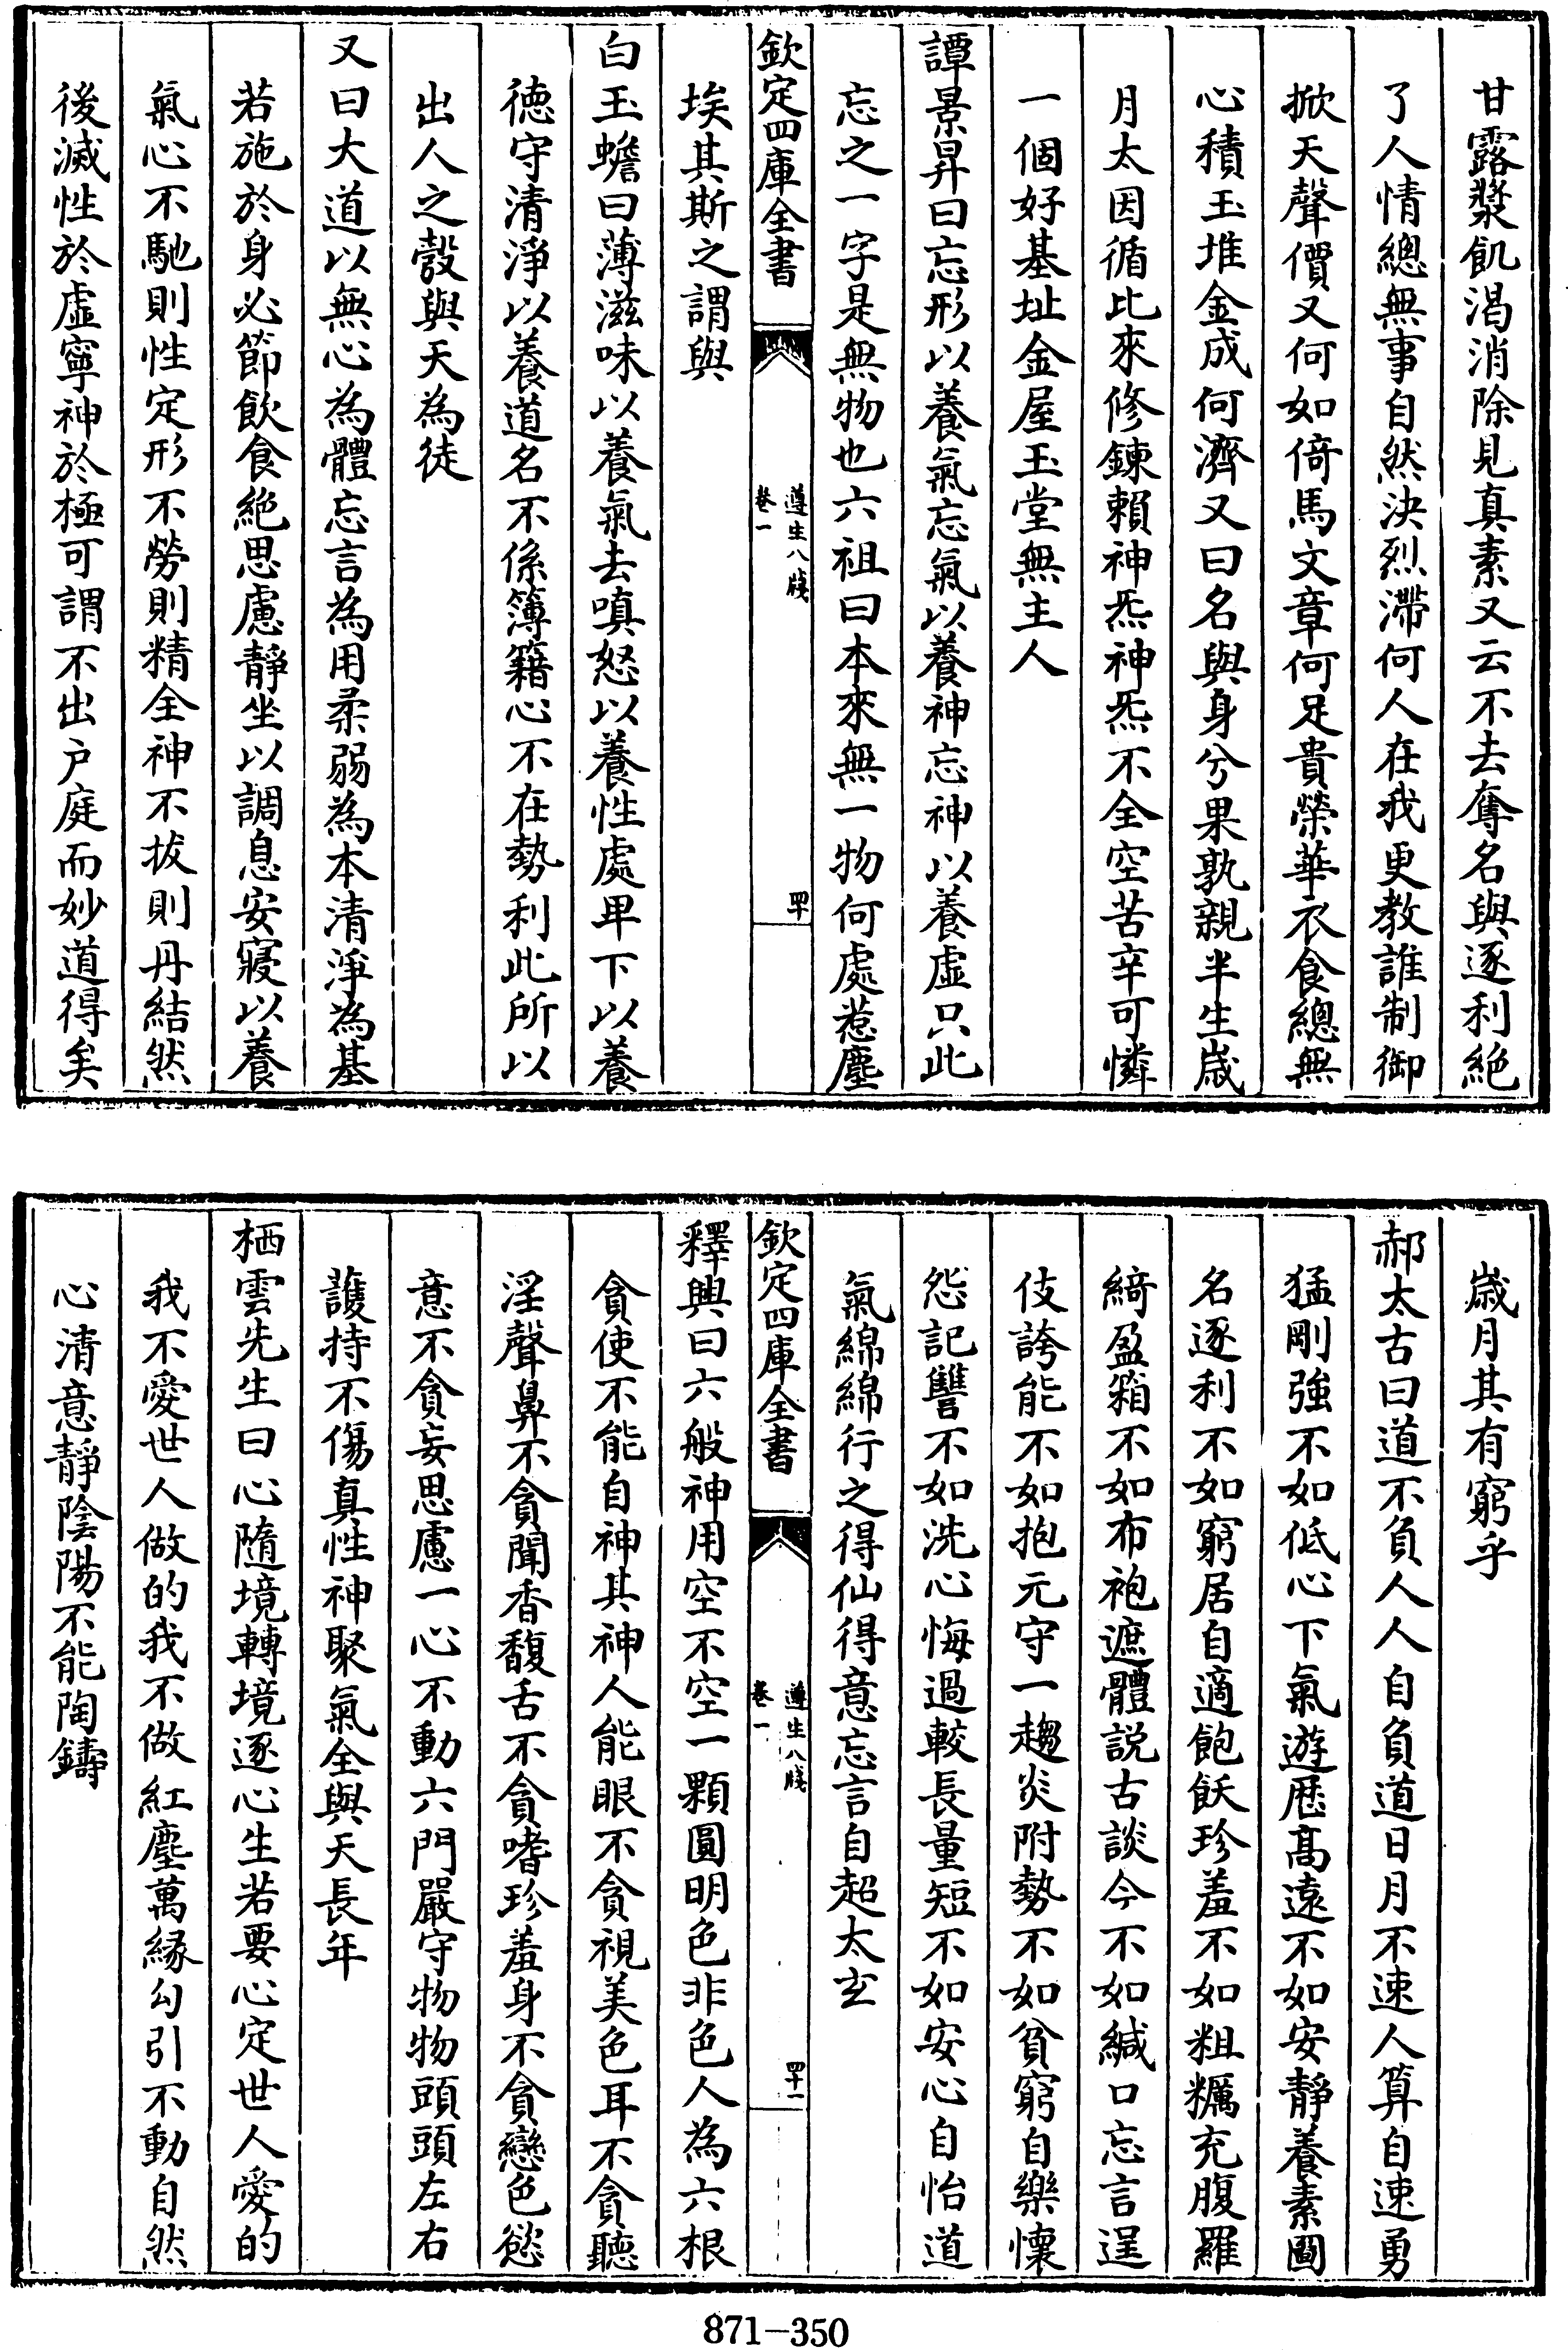 甘露漿飢渴消除見真素又云不去奪名與逐利絶
了人情總無事自然決烈滯何人在我更教誰制御
掀天聲價又何如倚馬文章何足貴榮華衣食總無
心積玉堆金成何濟又曰名與身兮果孰親半生歲
月太因循比來修鍊賴神炁神炁不全空苦辛可憐
一個好基址金屋玉堂無主人
譚景昇曰忘形以養氣忘氣以養神忘神以養虛只此
忘之一字是無物也六祖曰本來無一物何處惹塵
欽定四庫全書
遵生八牋
卷一
四十
埃其斯之謂與
白玉蟾曰薄滋味以養氣去嗔怒以養性處卑下以養
德守清淨以養道名不係簿籍心不在勢利此所以
出人之彀與天為徒
又曰大道以無心為體忘言為用柔弱為本清淨為基
若施於身必節飲食絶思慮靜坐以調息安寢以養
氣心不馳則性定形不勞則精全神不拔則丹結然
後滅性於虛寧神於極可謂不出户庭而妙道得矣
歲月其有窮乎
郝太古曰道不負人人自負道日月不速人算自速勇
猛剛強不如低心下氣遊歴髙遠不如安靜養素圖
名逐利不如窮居自適飽飫珍羞不如粗糲充腹羅
綺盈箱不如布袍遮體説古談今不如緘口忘言逞
伎誇能不如抱元守一趨炎附勢不如貧窮自樂懷
怨記讐不如洗心悔過較長量短不如安心自怡道
氣綿綿行之得仙得意忘言自超太玄
欽定四庫全書
遵生八牋
卷一
四十一
釋典曰六般神用空不空一顆圓明色非色人為六根
貪使不能自神其神人能眼不貪視美色耳不貪聽
淫聲鼻不貪聞香馥舌不貪嗜珍羞身不貪戀色慾
意不貪妄思慮一心不動六門嚴守物物頭頭左右
護持不傷真性神聚氣全與天長年
栖雲先生曰心隨境轉境逐心生若要心定世人愛的
我不愛世人做的我不做紅塵萬縁勾引不動自然
心清意靜陰陽不能陶鑄
871-350